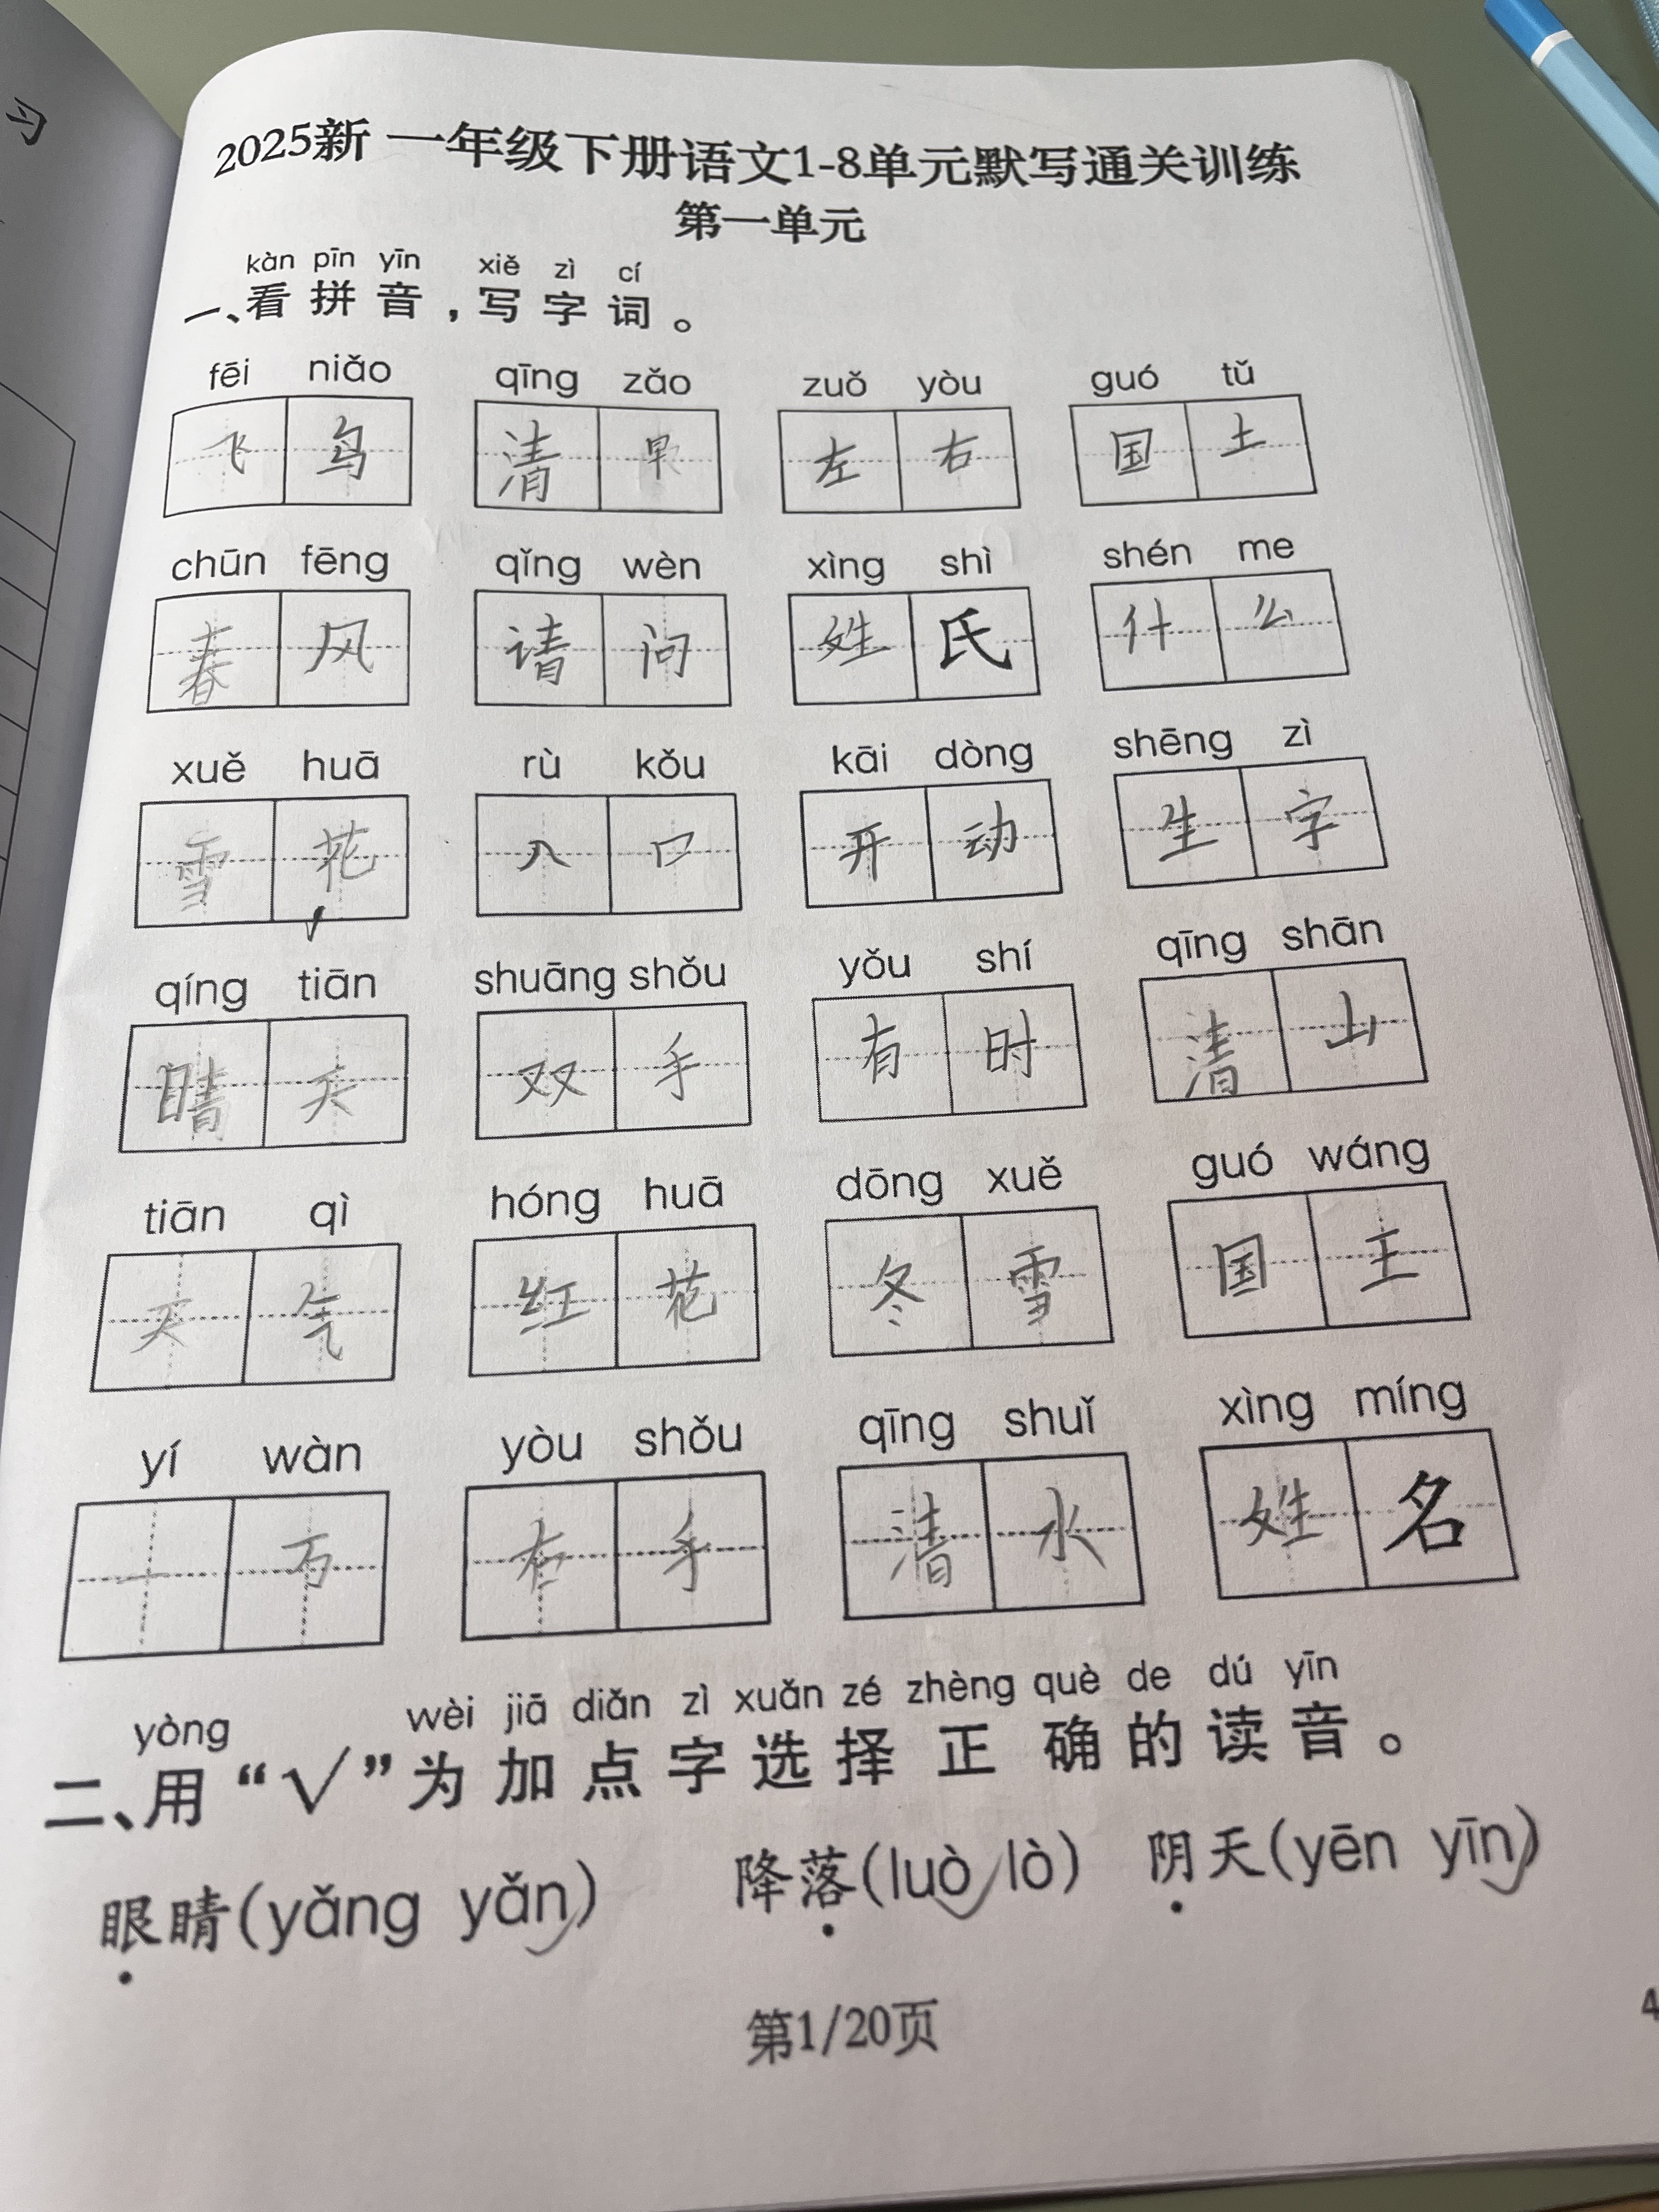 习
2025新 一年级下册语文1-8单元默写通关训练
第一单元
kàn pīn yīn xiě zì cí
一、看拼音，写字词。
fēi niǎo qīng zǎo zuǒ yòu guó tǔ
飞鸟 清早 左右 国土
chūn fēng qǐng wèn xìng shì shén me
春风 请问 姓氏 什么
xuě huā rù kǒu kāi dòng shēng zì
雪花 入口 开动 生字
qíng tiān shuāng shǒu yǒu shí qīng shān
睛天 双手 有时 清山
tiān qì hóng huā dōng xuě guó wáng
天气 红花 冬雪 国王
yí wàn yòu shǒu qīng shuǐ xìng míng
一万 右手 清水 姓名
yòng wèi jiā diǎn zì xuǎn zé zhèng què de dú yīn
二、用“√”为加点字选择正确的读音。
眼睛(yǎng yǎn) 降落(luò lò) 阴天(yēn yīn)
第1/20页
4